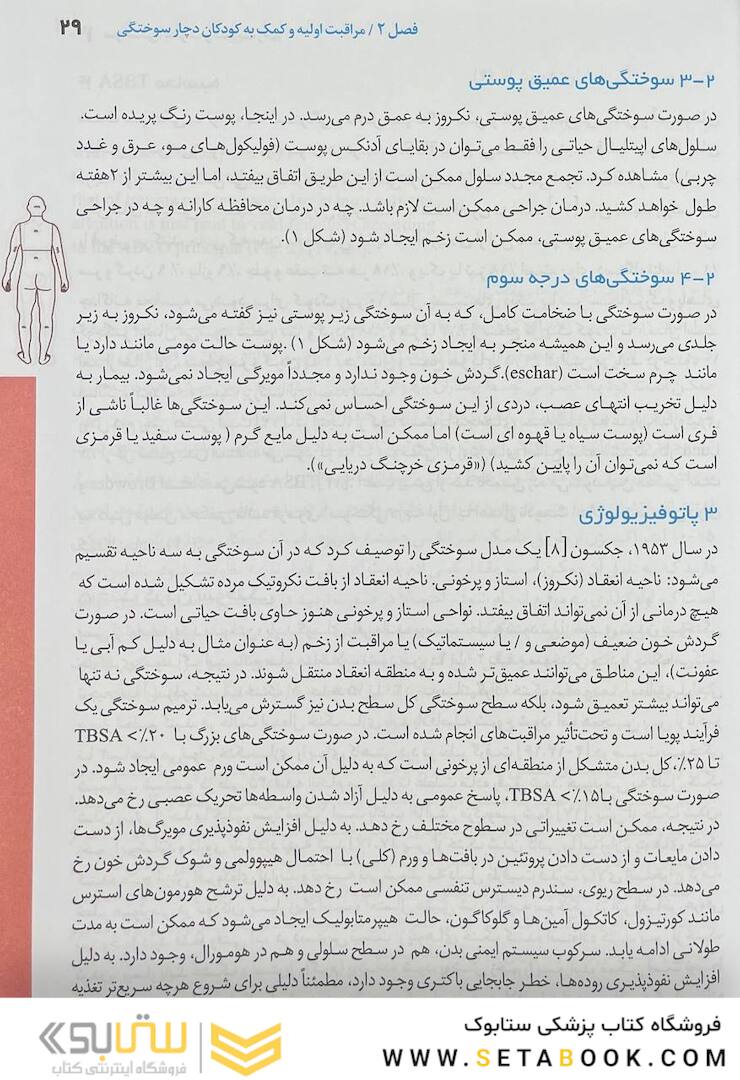 فصل ۲ / مراقبت اولیه و کمک به کودکان دچار سوختگی ۲۹
۳-۲ سوختگی‌های عمیق پوستی
در صورت سوختگی‌های عمیق پوستی، نکروز به عمق درم می‌رسد. در اینجا، پوست رنگ پریده است.
سلول‌های اپیتلیال حیاتی را فقط می‌توان در بقایای آدنکس پوست (فولیکول‌های مو، عرق و غدد
چربی) مشاهده کرد. تجمع مجدد سلول ممکن است از این طریق اتفاق بیفتد، اما این بیشتر از ۲هفته
طول خواهد کشید. درمان جراحی ممکن است لازم باشد. چه در درمان محافظه کارانه و چه در جراحی
سوختگی‌های عمیق پوستی، ممکن است زخم ایجاد شود (شکل ۱).
۴-۲ سوختگی‌های درجه سوم
در صورت سوختگی با ضخامت کامل، که به آن سوختگی زیر پوستی نیز گفته می‌شود، نکروز به زیر
جلدی می‌رسد و این همیشه منجر به ایجاد زخم می‌شود (شکل ۱) .پوست حالت مومی مانند دارد یا
مانند چرم سخت است (eschar).گردش خون وجود ندارد و مجدداً مویرگی ایجاد نمی‌شود. بیمار به
دلیل تخریب انتهای عصب، دردی از این سوختگی احساس نمی‌کند. این سوختگی‌ها غالباً ناشی از
فری است (پوست سیاه یا قهوه ای است) اما ممکن است به دلیل مایع گرم ( پوست سفید یا قرمزی
است که نمی‌توان آن را پایین کشید) («قرمزی خرچنگ دریایی»).
۳ پاتوفیزیولوژی
در سال ۱۹۵۳، جکسون [۸] یک مدل سوختگی را توصیف کرد که در آن سوختگی به سه ناحیه تقسیم
می‌شود: ناحیه انعقاد (نکروز)، استاز و پرخونی. ناحیه انعقاد از بافت نکروتیک مرده تشکیل شده است که
هیچ درمانی از آن نمی‌تواند اتفاق بیفتد. نواحی استاز و پرخونی هنوز حاوی بافت حیاتی است. در صورت
گردش خون ضعیف (موضعی و / یا سیستماتیک) یا مراقبت از زخم (به عنوان مثال به دلیل کم آبی یا
عفونت)، این مناطق می‌توانند عمیق‌تر شده و به منطقه انعقاد منتقل شوند. در نتیجه، سوختگی نه تنها
می‌تواند بیشتر تعمیق شود، بلکه سطح سوختگی کل سطح بدن نیز گسترش می‌یابد. ترمیم سوختگی یک
فرآیند پویا است و تحت‌تأثیر مراقبت‌های انجام شده است. در صورت سوختگی‌های بزرگ با TBSA >٪۲۰
تا ۲۵٪،کل بدن متشکل از منطقه‌ای از پرخونی است که به دلیل آن ممکن است ورم عمومی ایجاد شود. در
صورت سوختگی با۱۵٪> TBSA، پاسخ عمومی به دلیل آزاد شدن واسطه‌ها تحریک عصبی رخ می‌دهد.
در نتیجه، ممکن است تغییراتی در سطوح مختلف رخ دهد. به دلیل افزایش نفوذپذیری مویرگ‌ها، از دست
دادن مایعات و از دست دادن پروتئین در بافت‌ها و ورم (کلی) با احتمال هیپوولمی و شوک گردش خون رخ
می‌دهد. در سطح ریوی، سندرم دیسترس تنفسی ممکن است رخ دهد. به دلیل ترشح هورمون‌های استرس
مانند کورتیزول، کاتکول آمین‌ها و گلوکاگون، حالت هیپرمتابولیک ایجاد می‌شود که ممکن است به مدت
طولانی ادامه یابد. سرکوب سیستم ایمنی بدن، هم در سطح سلولی و هم در هومورال، وجود دارد. به دلیل
افزایش نفوذپذیری روده‌ها، خطر جابجایی باکتری وجود دارد، مطمئناً دلیلی برای شروع هرچه سریع‌تر تغذیه
فروشگاه کتاب پزشکی ستابوک
WWW.SETABOOK.COM
ستابوک
فروشگاه اینترنتی کتاب